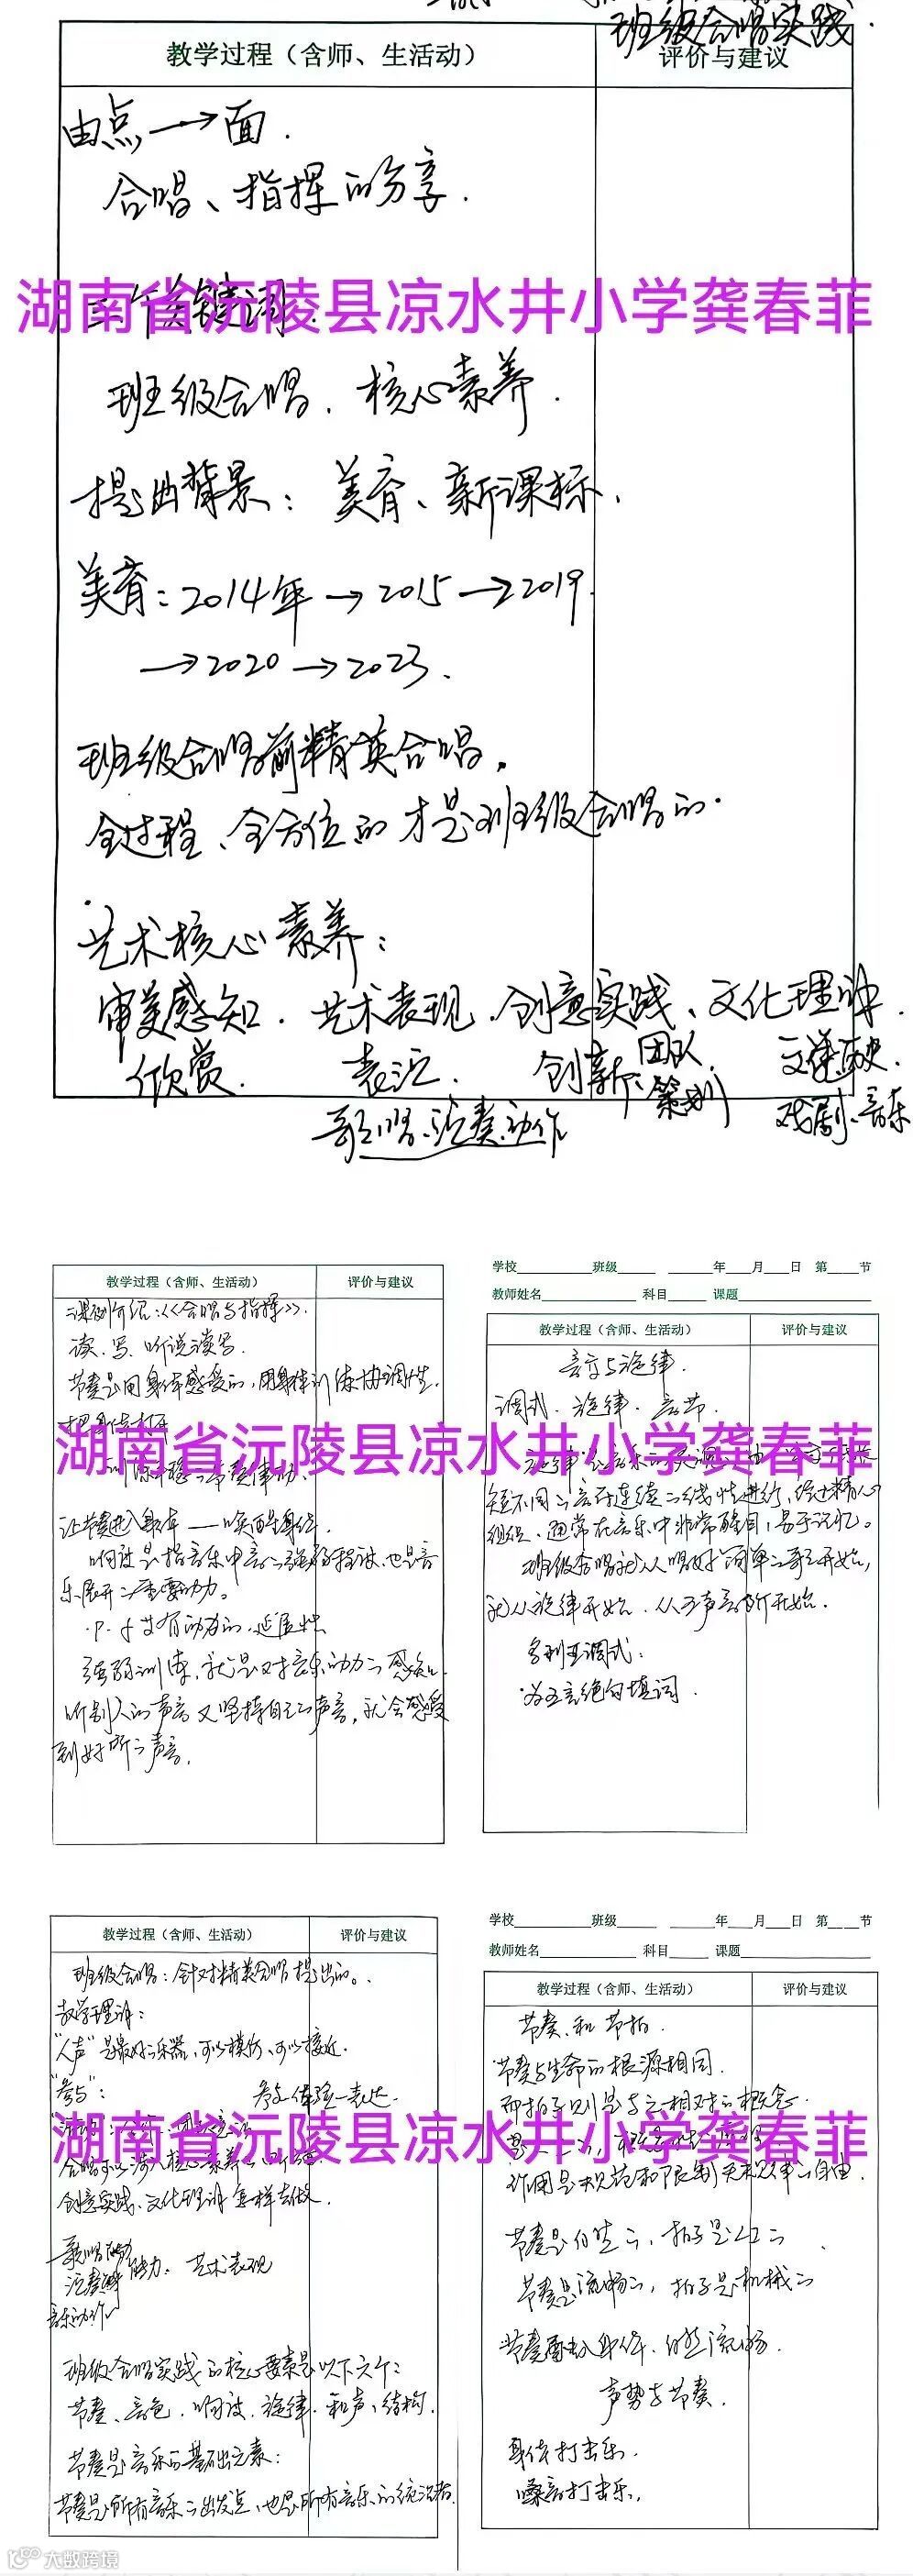 班级合唱实践.
教学过程（含师、生活动）
评价与建议
由点→面.
合唱、指挥的分享.
湖南省沅陵县凉水井小学龚春菲
班级合唱、核心素养.
提出背景：美育、新课标.
美育：2014年→2015→2019
→2020→2023.
班级合唱前精英合唱.
全过程、全方位的才是班级合唱的.
艺术核心素养：
审美感知.艺术表现.创意实践、文化理解.
欣赏. 表演. 创新、团队 文学历史.
策划 戏剧、音乐
歌唱、演奏、动作
教学过程（含师、生活动）
评价与建议
课例介绍：《合唱与指挥》.
读.写.听说读写.
节奏是用身体感受的,用身体训练协调性.
湖南省沅陵县凉水井小学龚春菲
让节奏进入身体——唤醒身体.
响度是指音乐中音的强弱程度,也是音
乐展开的重要动力.
强弱训练,就是对音乐动力的感知.
听别人的声音又坚持自己的声音,就会感受
到好听的声音.
学校 班级 年 月 日 第 节
教师姓名 科目 课题
教学过程（含师、生活动）
评价与建议
音高与旋律.
调式.旋律.音节.
短不同的音符连续的线性进行,经过精心
组织.通常在音乐中非常醒目,易于记忆。
班级合唱就从唱好简单的歌开始,
就从旋律开始.从五声音阶开始.
多利亚调式：
为五言绝句填词.
教学过程（含师、生活动）
评价与建议
班级合唱：针对精英合唱提出的.
教学理解：
"人声"是最好的乐器,可以模仿、可以接近.
"参与"： 参与—体验—表达.
湖南省沅陵县凉水井小学龚春菲
创意实践、文化理解怎样去做.
歌唱能力
能力：艺术表现
音乐动作
班级合唱实践的核心要素是以下六个：
节奏、音色.响度.旋律.和声、结构.
节奏是音乐的基础元素：
节奏是所有音乐的出发点,也是所有音乐的统治者.
学校 班级 年 月 日 第 节
教师姓名 科目 课题
教学过程（含师、生活动）
评价与建议
节奏.和节拍.
节奏与生命的根源相同.
而拍子则是与之相对的概念.
作用是规范和限制无规律的自由.
节奏是自然的,拍子是人工的
节奏是流畅的,拍子是机械的
节奏要击入身体.自然流畅.
声势与节奏.
身体打击乐.
嗓音打击乐.
大数跨境